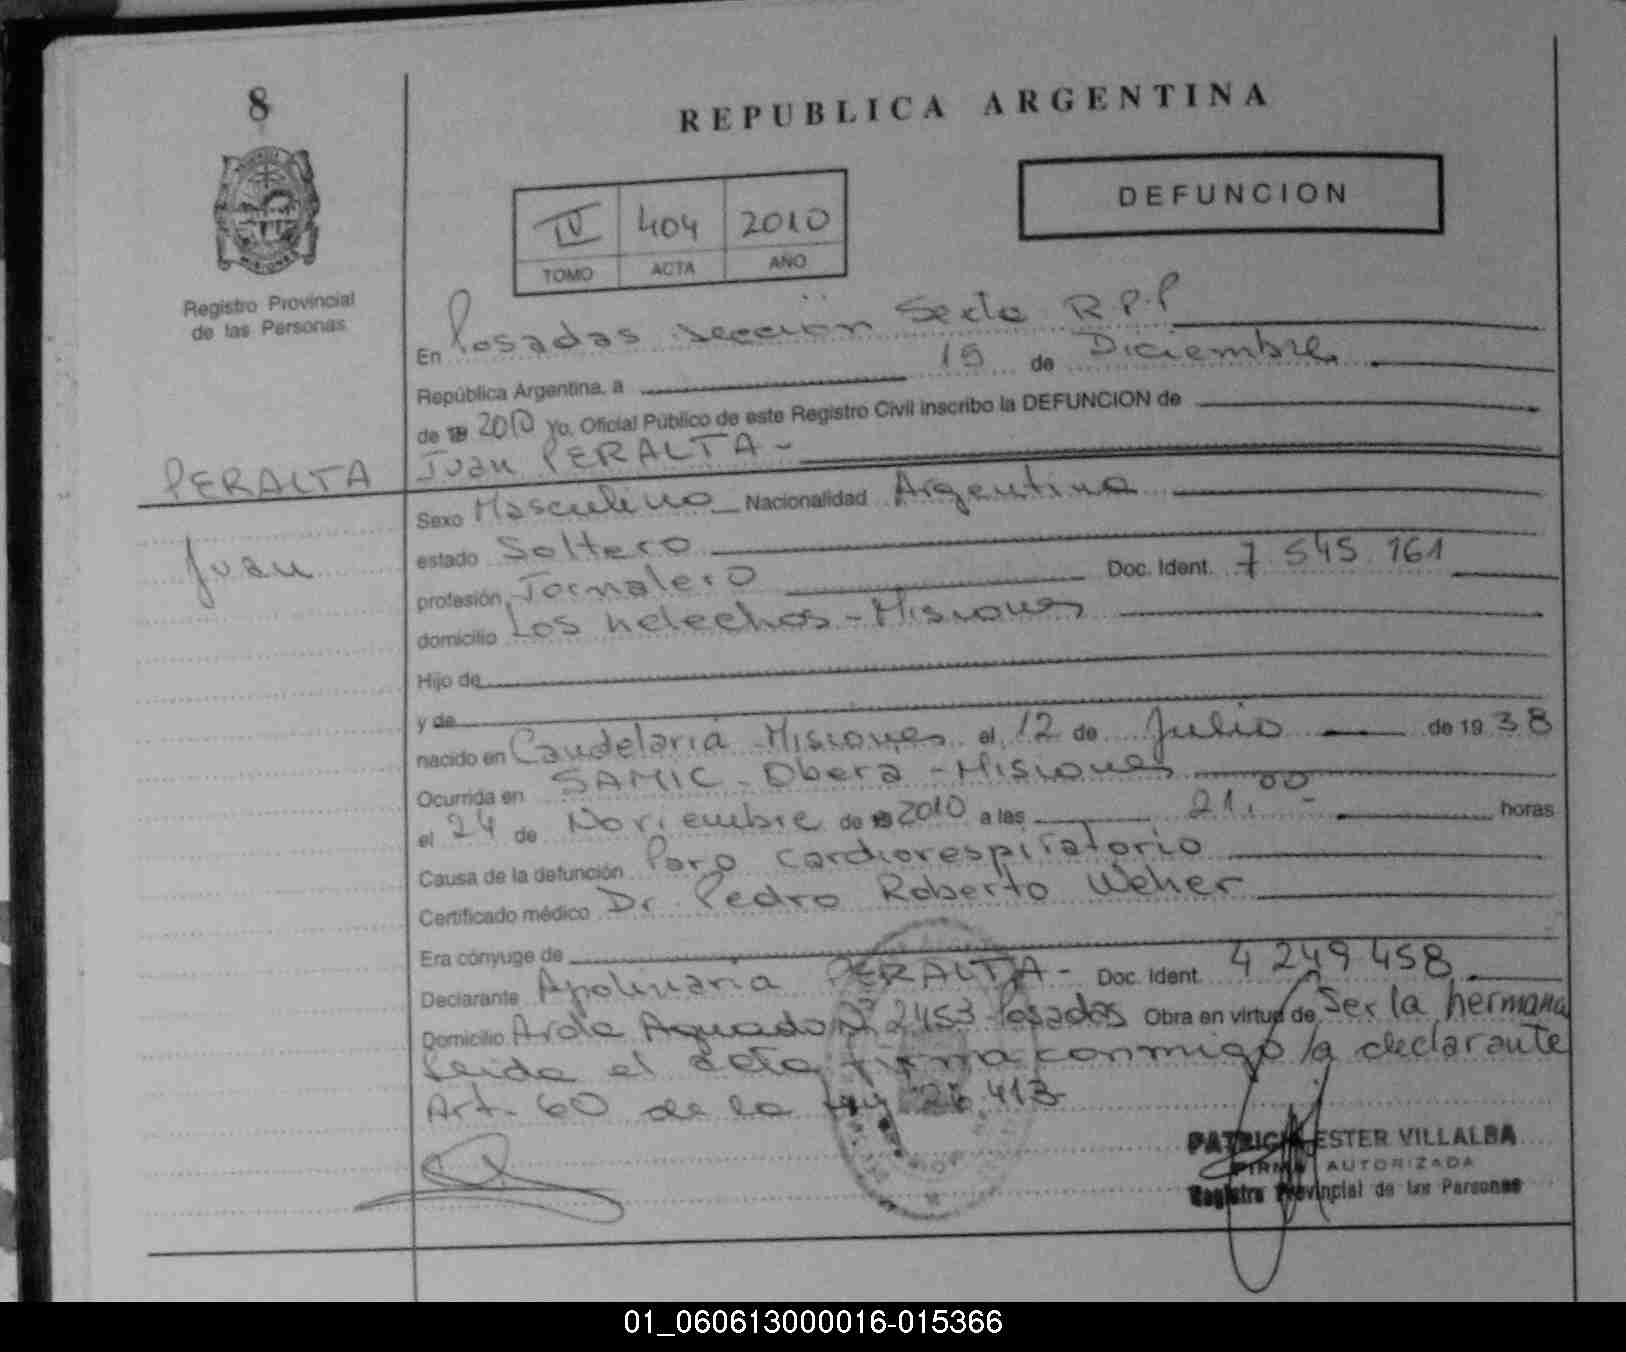 8
REPUBLICA ARGENTINA
DEFUNCION
IV 404 2010
TOMO ACTA AÑO
Registro Provincial
de las Personas
En Posadas sección Sexta R.P.P
República Argentina, a 15 de Diciembre
de 19 2010 yo, Oficial Público de este Registro Civil inscribo la DEFUNCION de
PERALTA Juan PERALTA -
Juan
Sexo Masculino Nacionalidad Argentina
estado Soltero
profesión Jornalero Doc. Ident. 7 545 161
domicilio Los helechos - Misiones
Hijo de
y de
nacido en Candelaria - Misiones el 12 de Julio de 19 38
Ocurrida en SAMIC - Oberá - Misiones
el 24 de Noviembre de 19 2010 a las 21,00 horas
Causa de la defunción Paro cardiorespiratorio
Certificado médico Dr. Pedro Roberto Weher
Era cónyuge de
Declarante Apolinaria PERALTA - Doc. Ident. 4 249 458
Domicilio Avda Aguado Nº 2453 Posadas Obra en virtud de Ser la hermana
Leida el acta firma conmigo la declarante
Art. 60 de la ley 26.413-
PATRICIA ESTER VILLALBA
FIRMA AUTORIZADA
Registro Provincial de las Personas
01_060613000016-015366